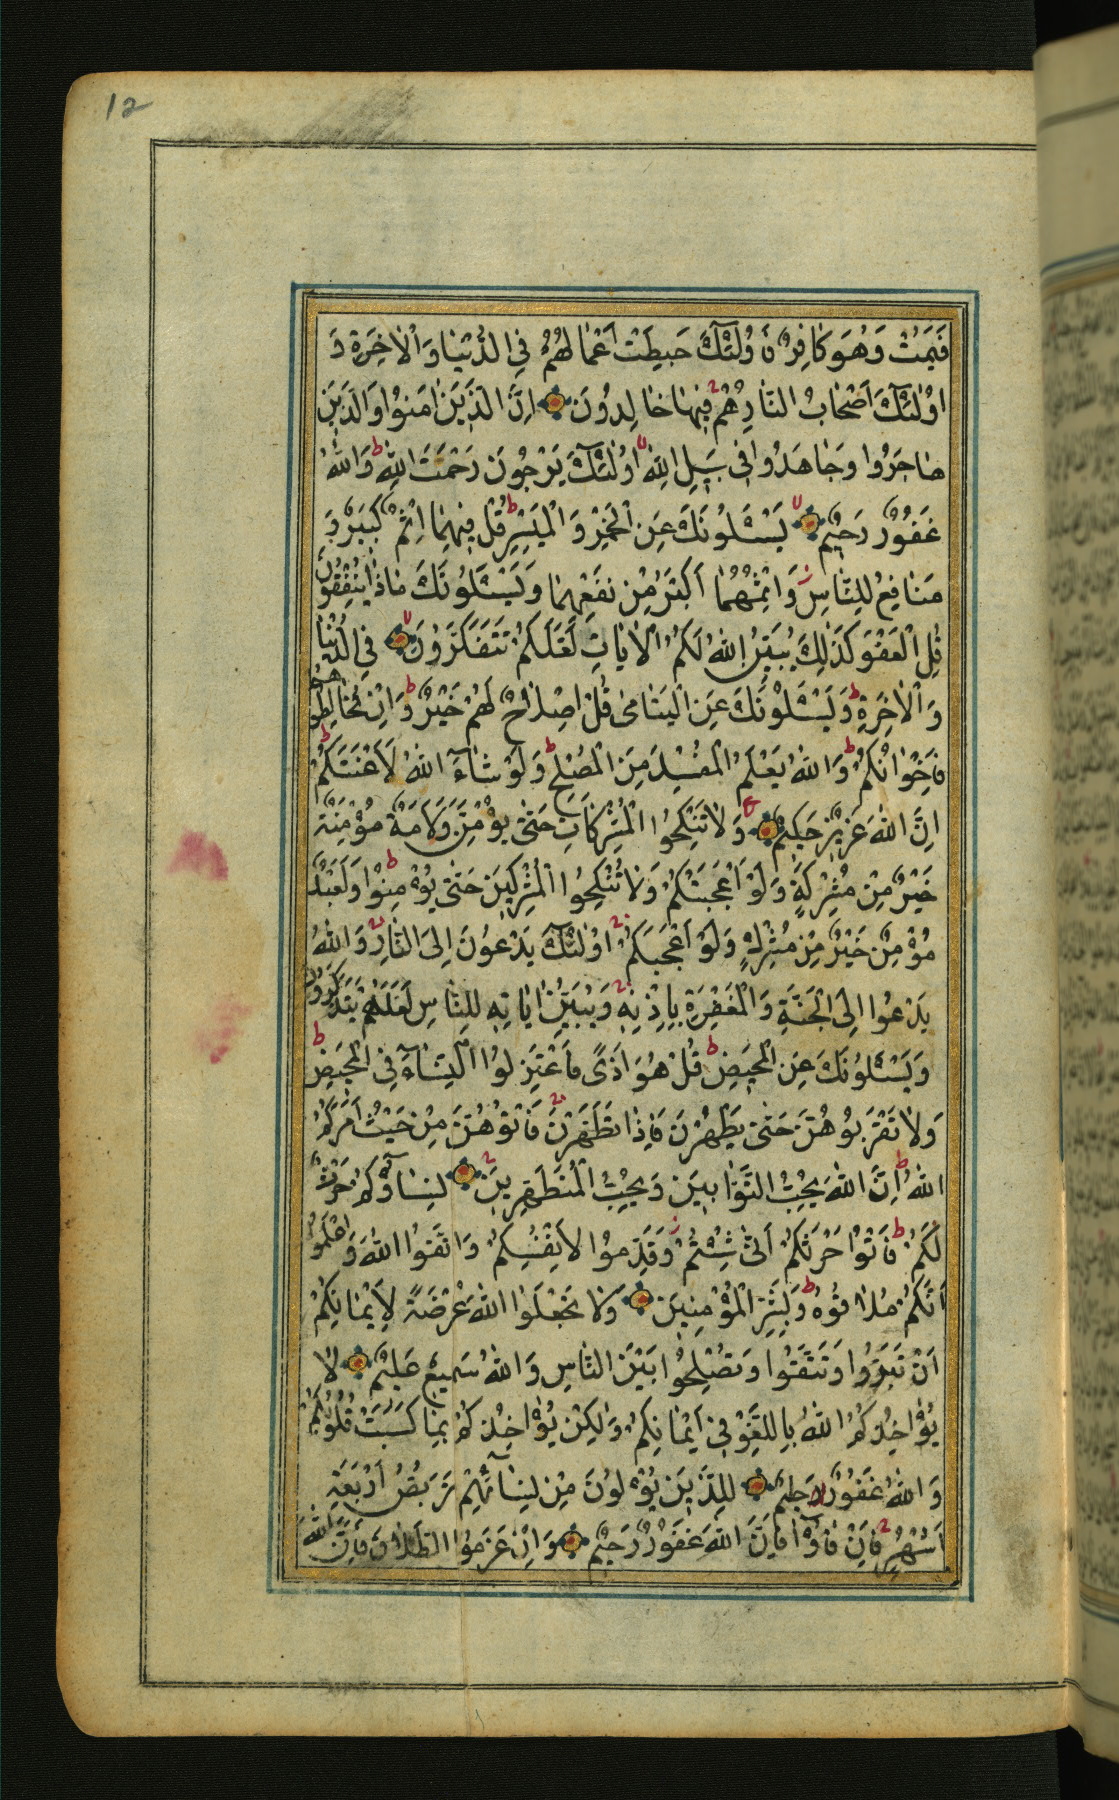 12
فَيَمُتْ وَهُوَ كَافِرٌ فَاُولٰئِكَ حَبِطَتْ اَعْمَالُهُمْ فِي الدُّنْيَا وَالْاٰخِرَةِ وَ
اُولٰئِكَ اَصْحَابُ النَّارِ هُمْ فِيهَا خَالِدُونَ اِنَّ الَّذِينَ اٰمَنُوا وَالَّذِينَ
هَاجَرُوا وَجَاهَدُوا فِي سَبِيلِ اللّٰهِ اُولٰئِكَ يَرْجُونَ رَحْمَتَ اللّٰهِ وَاللّٰهُ
غَفُورٌ رَحِيمٌ يَسْئَلُونَكَ عَنِ الْخَمْرِ وَالْمَيْسِرِ قُلْ فِيهِمَا اِثْمٌ كَبِيرٌ وَ
مَنَافِعُ لِلنَّاسِ وَاِثْمُهُمَا اَكْبَرُ مِنْ نَفْعِهِمَا وَيَسْئَلُونَكَ مَاذَا يُنْفِقُونَ
قُلِ الْعَفْوَ كَذٰلِكَ يُبَيِّنُ اللّٰهُ لَكُمُ الْاٰيَاتِ لَعَلَّكُمْ تَتَفَكَّرُونَ فِي الدُّنْيَا
وَالْاٰخِرَةِ وَيَسْئَلُونَكَ عَنِ الْيَتَامٰى قُلْ اِصْلَاحٌ لَهُمْ خَيْرٌ وَاِنْ تُخَالِطُوهُمْ
فَاِخْوَانُكُمْ وَاللّٰهُ يَعْلَمُ الْمُفْسِدَ مِنَ الْمُصْلِحِ وَلَوْ شَاءَ اللّٰهُ لَاَعْنَتَكُمْ
اِنَّ اللّٰهَ عَزِيزٌ حَكِيمٌ وَلَا تَنْكِحُوا الْمُشْرِكَاتِ حَتّٰى يُؤْمِنَّ وَلَاَمَةٌ مُؤْمِنَةٌ
خَيْرٌ مِنْ مُشْرِكَةٍ وَلَوْ اَعْجَبَتْكُمْ وَلَا تُنْكِحُوا الْمُشْرِكِينَ حَتّٰى يُؤْمِنُوا وَلَعَبْدٌ
مُؤْمِنٌ خَيْرٌ مِنْ مُشْرِكٍ وَلَوْ اَعْجَبَكُمْ اُولٰئِكَ يَدْعُونَ اِلَى النَّارِ وَاللّٰهُ
يَدْعُوا اِلَى الْجَنَّةِ وَالْمَغْفِرَةِ بِاِذْنِهِ وَيُبَيِّنُ اٰيَاتِهِ لِلنَّاسِ لَعَلَّهُمْ يَتَذَكَّرُونَ
وَيَسْئَلُونَكَ عَنِ الْمَحِيضِ قُلْ هُوَ اَذًى فَاعْتَزِلُوا النِّسَاءَ فِي الْمَحِيضِ
وَلَا تَقْرَبُوهُنَّ حَتّٰى يَطْهُرْنَ فَاِذَا تَطَهَّرْنَ فَاْتُوهُنَّ مِنْ حَيْثُ اَمَرَكُمُ
اللّٰهُ اِنَّ اللّٰهَ يُحِبُّ التَّوَّابِينَ وَيُحِبُّ الْمُتَطَهِّرِينَ نِسَاؤُكُمْ حَرْثٌ
لَكُمْ فَاْتُوا حَرْثَكُمْ اَنّٰى شِئْتُمْ وَقَدِّمُوا لِاَنْفُسِكُمْ وَاتَّقُوا اللّٰهَ وَاعْلَمُوا
اَنَّكُمْ مُلَاقُوهُ وَبَشِّرِ الْمُؤْمِنِينَ وَلَا تَجْعَلُوا اللّٰهَ عُرْضَةً لِاَيْمَانِكُمْ
اَنْ تَبَرُّوا وَتَتَّقُوا وَتُصْلِحُوا بَيْنَ النَّاسِ وَاللّٰهُ سَمِيعٌ عَلِيمٌ لَا
يُؤَاخِذُكُمُ اللّٰهُ بِاللَّغْوِ فِي اَيْمَانِكُمْ وَلٰكِنْ يُؤَاخِذُكُمْ بِمَا كَسَبَتْ قُلُوبُكُمْ
وَاللّٰهُ غَفُورٌ حَلِيمٌ لِلَّذِينَ يُؤْلُونَ مِنْ نِسَائِهِمْ تَرَبُّصُ اَرْبَعَةِ
اَشْهُرٍ فَاِنْ فَاؤُا فَاِنَّ اللّٰهَ غَفُورٌ رَحِيمٌ وَاِنْ عَزَمُوا الطَّلَاقَ فَاِنَّ اللّٰهَ